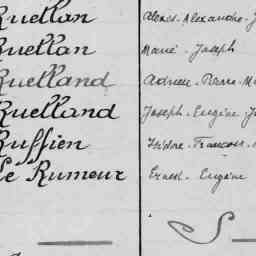 Ruellan Alexis - Alexandre - J
Ruellan Marie - Joseph
Ruelland Adrien - Pierre - M
Ruelland Joseph - Eugène - J
Ruffien Isidore - Francois -
Le Rumeur Ernest - Eugène
S